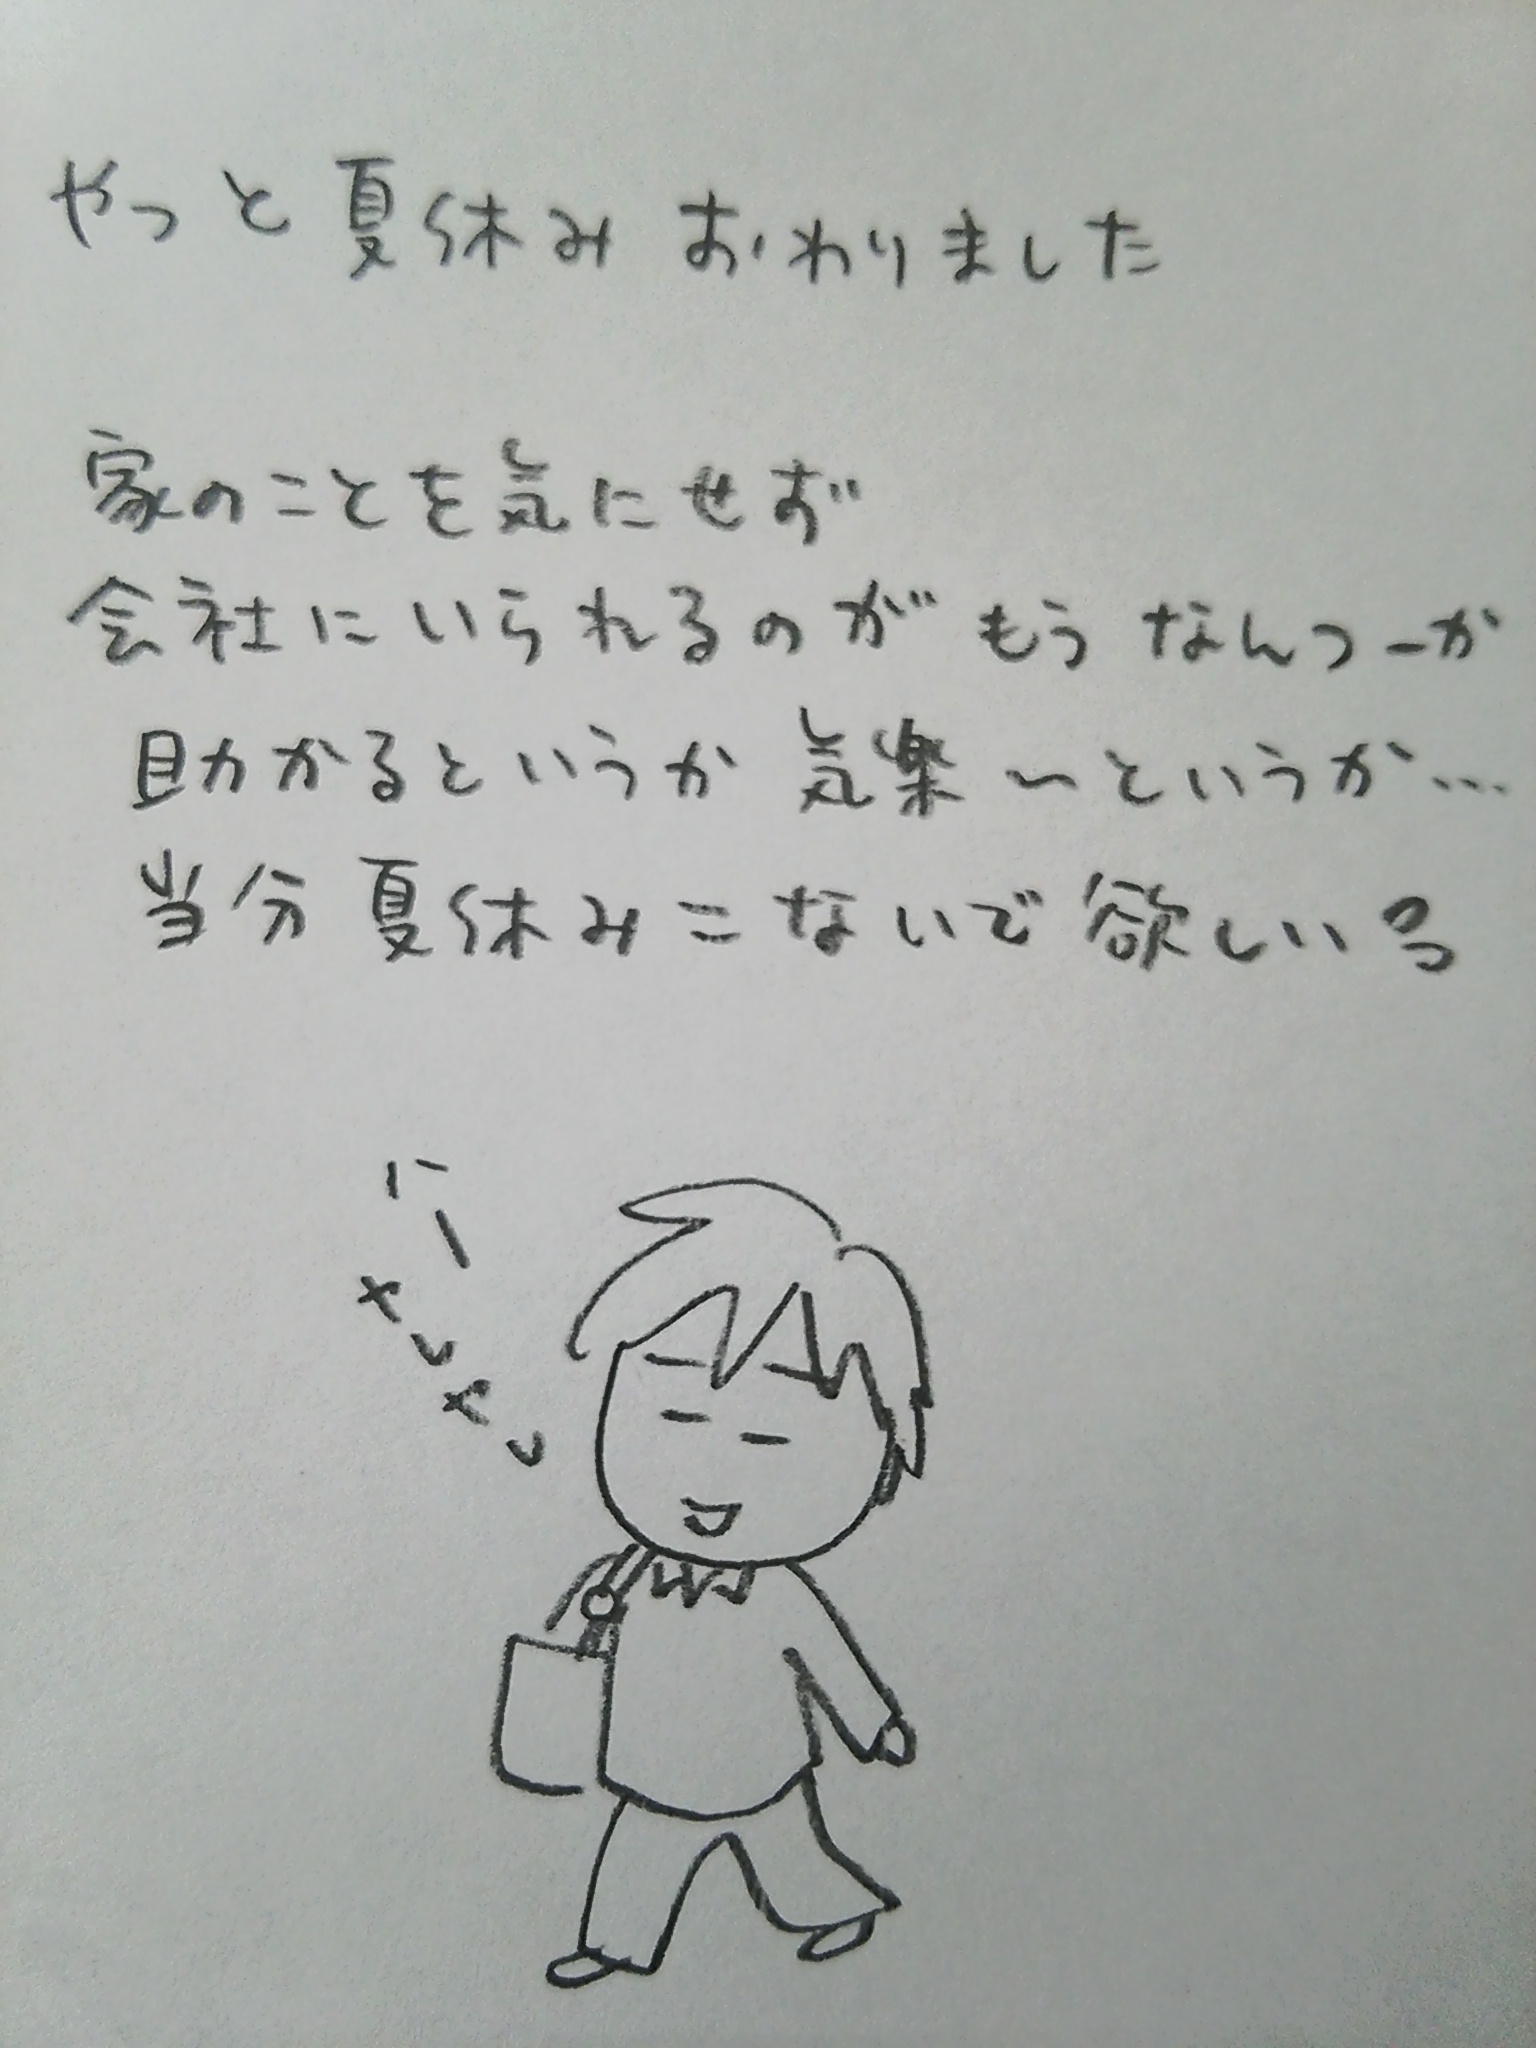 やっと夏休みおわりました
家のことを気にせず
会社にいられるのがもうなんつーか
助かるというか気楽〜というか…
当分夏休みこないで欲しい